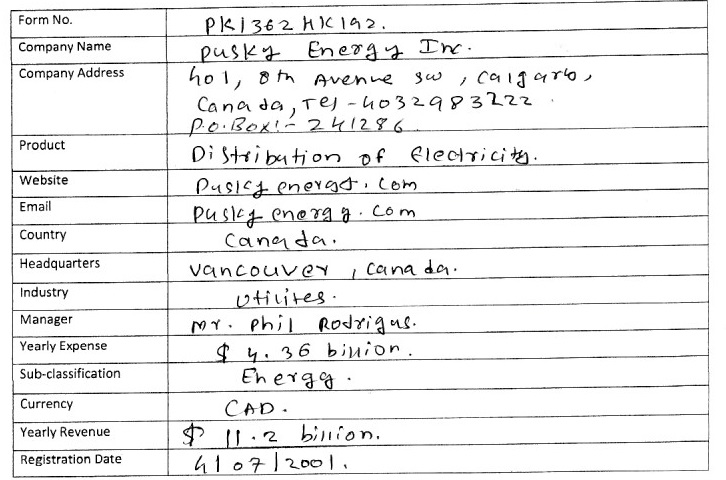 Form No. PK1362HK192.
Company Name Pusky Energy Inc.
Company Address 401, 8th Avenue SW, Calgary,
Canada, Tel - 4032983222.
P.O. Box:- 241286.
Product Distribution of Electricity.
Website Puskyenergy.com
Email Puskyenergy.com
Country Canada.
Headquarters Vancouver, Canada.
Industry Utilites.
Manager Mr. Phil Rodrigus.
Yearly Expense $ 4.36 billion.
Sub-classification Energy.
Currency CAD.
Yearly Revenue $ 11.2 billion.
Registration Date 4/07/2001.